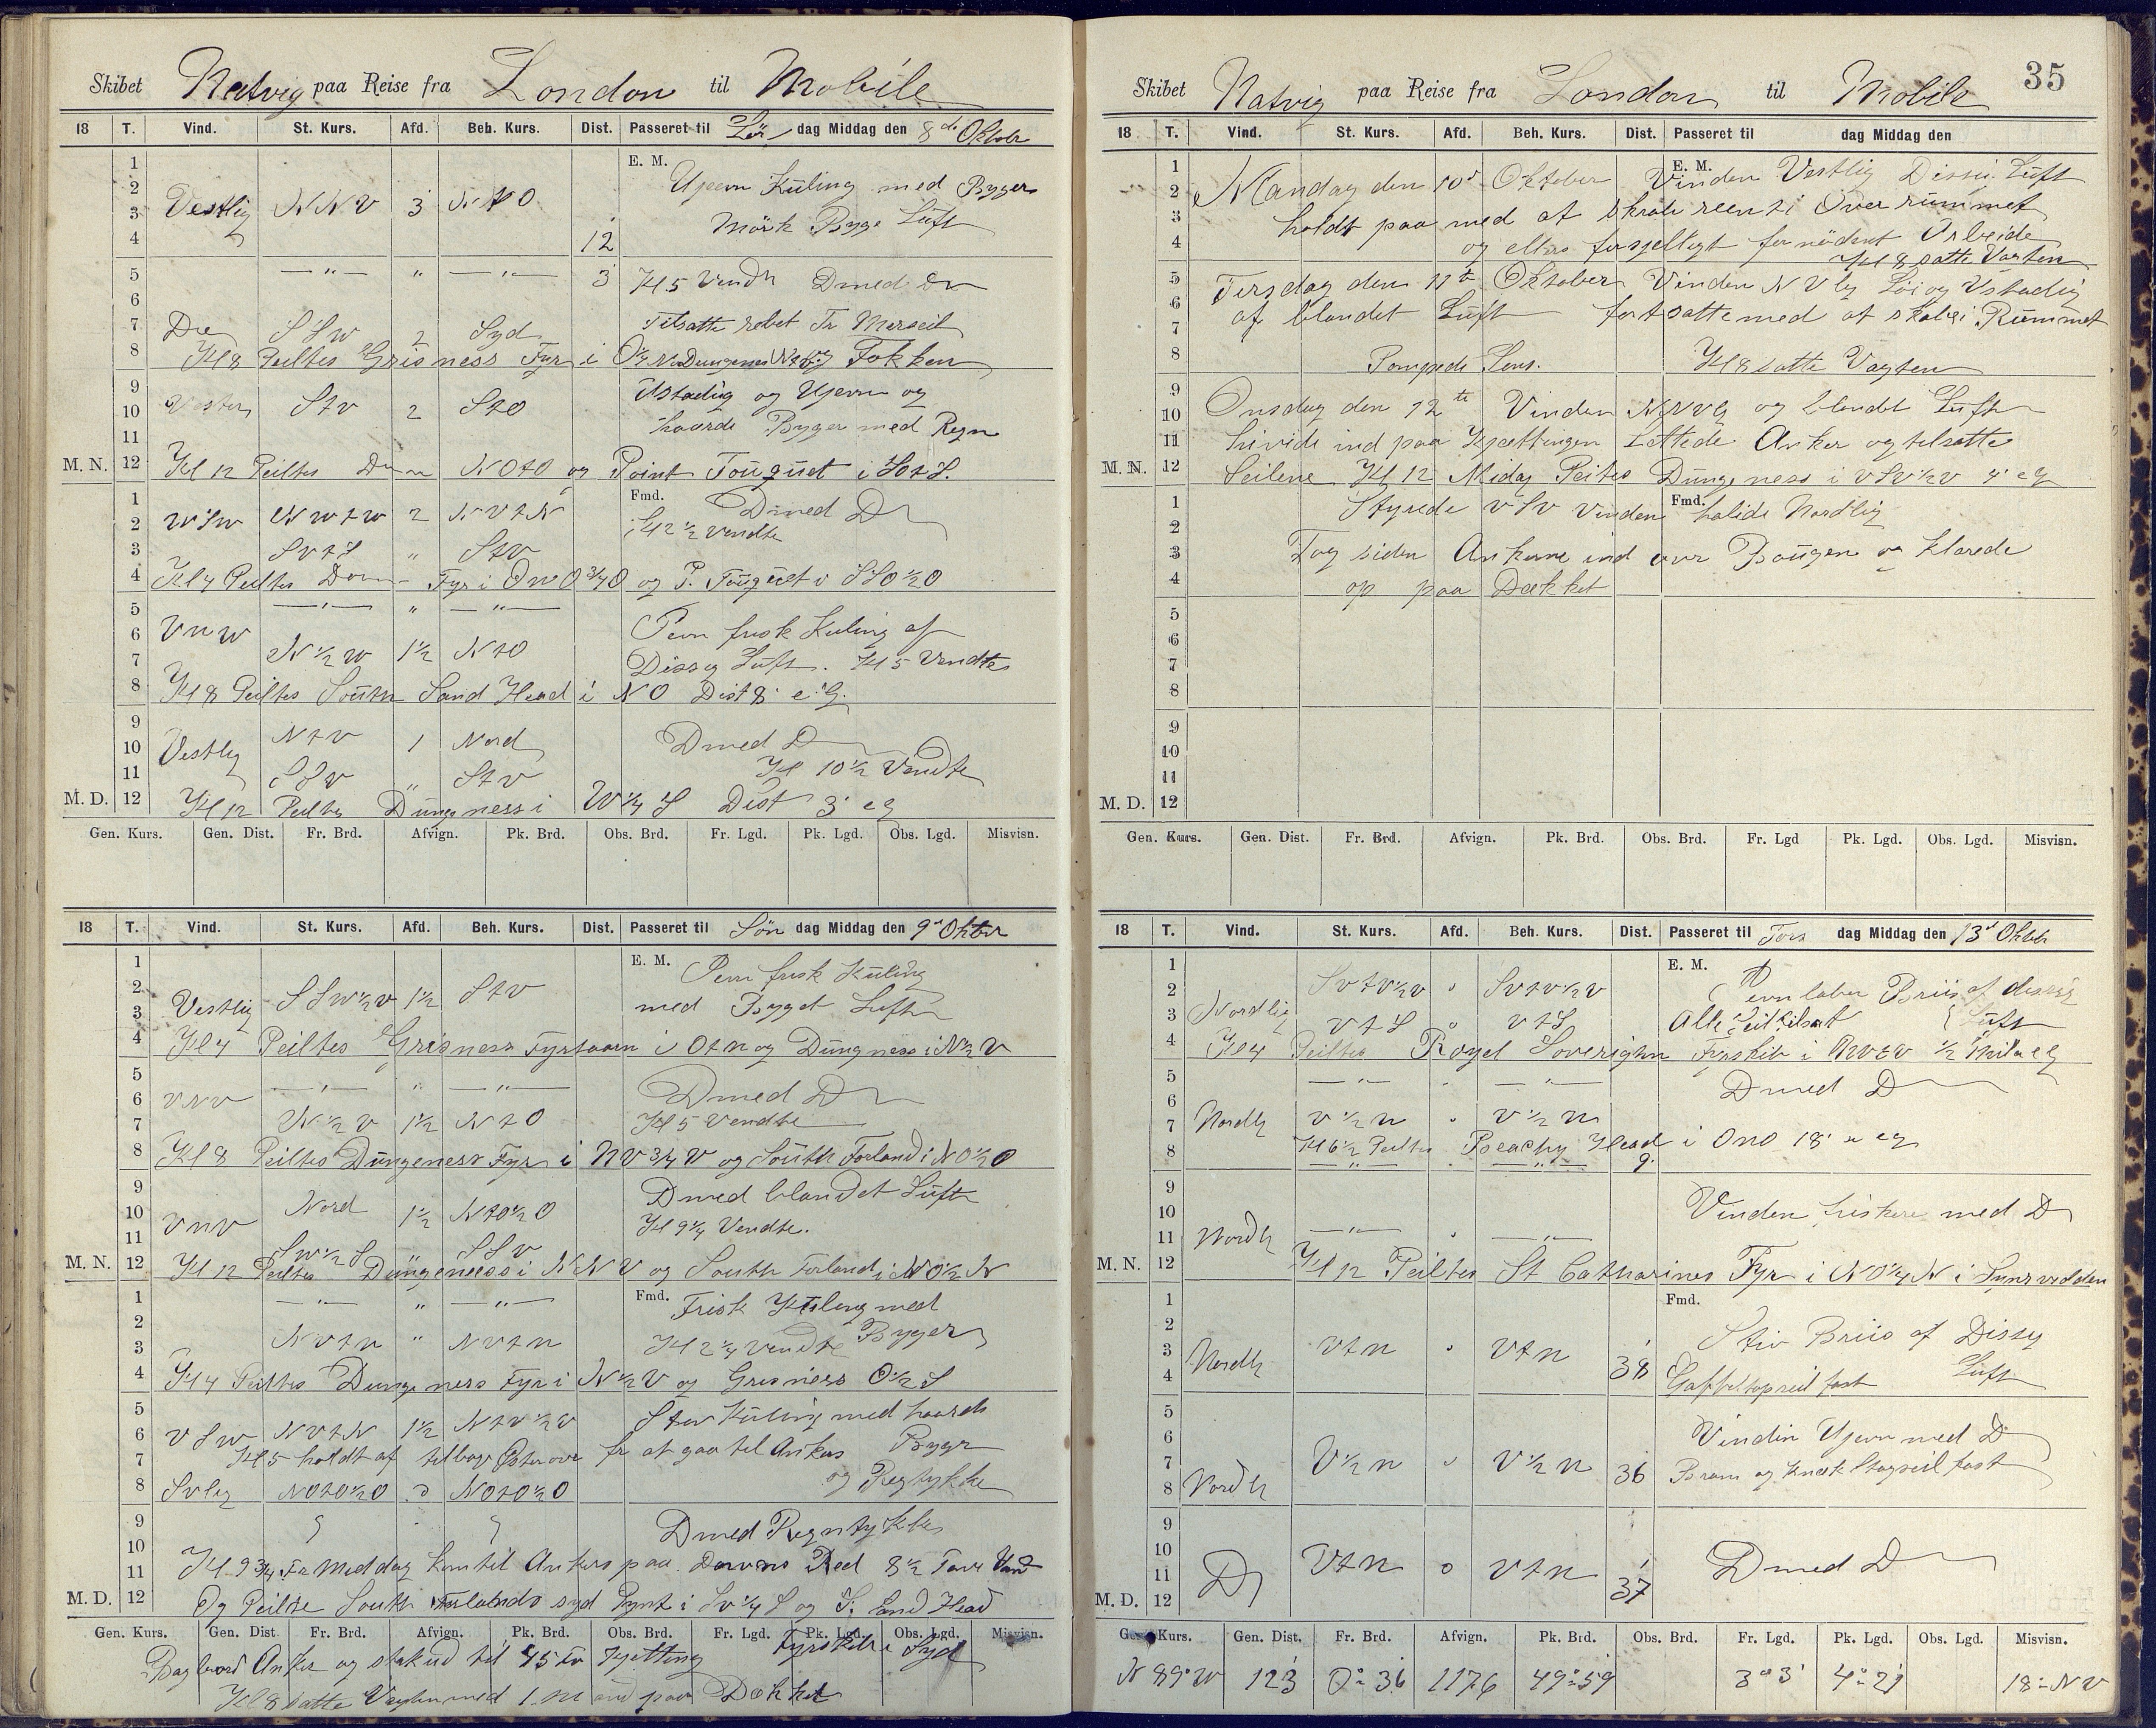 Skibet Natvig paa Reise fra London til Mobile
18 T. Vind. St. Kurs. Afd. Beh. Kurs. Dist. Passeret til Lör dag Middag den 8de Oktober
1 E. M. Ujevn Küling med Byger
2 Vestlig NNV 3 NtO
3 Mörk Byge Luft
4 12
5 — " — " — " — 3 Kl 5 Vendte Dmed Do
6
7 Do SSW 2 Syd Tilsatte rebet Fr Merseil
8 Kl 8 Peiltes Grisness Fyr i Fokken
9 Ustadig og Ujevn og
10 Vestlig StV 2 StO
11 haarde Byger med Regn
M. N. 12 Kl 12 Peiltes NOtO og Point Touquet i SOtS.
1 Fmd. Dmed Do
2 WSW NWtW 2 NVtN Kl 2 ½ Vendte
3 SVtS " StV
4 Kl 4 Peiltes Fyr i ONO ¾ O og P. Touquet i SSO ½ O
5 — " — " — " —
6 VNW Pevn frisk Kuling af
7 N ½ W 1½ NtO Dissig Luft. Kl 5 Vendte
8 Kl 8 Peiltes South Sand Head i NO Dist 8' e G.
9 NtV 1 Nord
10 Vestlig Dmed Do
11 SSV " StV Kl 10½ Vendte
M. D. 12 Kl 12 Peiltes Dungness i W ¼ S Dist 3' e G
Gen. Kurs. Gen. Dist. Fr. Brd. Afvign. Pk. Brd. Obs. Brd. Fr. Lgd. Pk. Lgd. Obs. Lgd. Misvisn.
18 T. Vind. St. Kurs. Afd. Beh. Kurs. Dist. Passeret til Sön dag Middag den 9de Oktber
1 E. M. Pevn frisk Küling
2 SSW½V 1½ StV
3 Vestlig med Byget Luft
4 Kl 4 Peiltes Grisness Fyrtaarn i OtN og Dungness i N½V
5 — " — " — " —
6 VNV Dmed Do
7 N½V 1½ NtO Kl 5 Vendte
8 Kl 8 Peiltes Dungeness Fyr i NV¾V og South Forland i NO½O
9 Dmed blandet Luft
10 VNV Nord 1½ NtO½O Kl 9¼ Vendte.
11 SW½S " SSV
M. N. 12 Kl 12 Peiltes Dungeness i NNV og South Forland i NO½N
1 — " — " — " — Fmd. Frisk Kuling med
2 Byger
3 NVtN " NVtN Kl 2¼ Vendte
4 Kl 4 Peiltes Dungeness Fyr i N½V og Grisness O½S
5 Stiv Küling med haarde
6 VSW NVtN 1½ NtV½V Byger
7 Kl 5 holdt af tilbage Österover for at gaa til Ankers
8 SVlig NOtO½O 0 NOtO½O og Regtykke
9 Dmed Regntykke
10
11 Kl 9¾ Fr Meddag Kom til Ankers paa Downs Red 8½ Favn Vand
M. D. 12 Og Peilte South Forlands syd Pynt i SV¼S og S. Sand Head
Gen. Kurs. Gen. Dist. Fr. Brd. Afvign. Pk. Brd. Obs. Brd. Fr. Lgd. Pk. Lgd. Obs. Lgd. Misvisn.
Fyrskib i Syd
Bagbord Anker og stak ud til 45 fv Kjetting
Kl 8 satte Vagten med 1 Mand paa Dækket
35
Skibet Natvig paa Reise fra London til Mobile
18 T. Vind. St. Kurs. Afd. Beh. Kurs. Dist. Passeret til dag Middag den
1 E. M.
2 Mandag den 10de Oktober Vinden Vestlig Dissig Luft
3 holdt paa med at skrabe reent i Over rummet
4 og ellers forsjelligt fornödent Arbeide
Kl 8 satte Vagten
5 Tirsdag den 11te Oktober Vinden NVlig Löi og Ustadig
6 af blandet Luft fortsatte med at skrabe i Rummet
7
8 Pompede Lens. Kl 8 satte Vagten
9
10 Onsdag den 12te Vinden NNVlig og blandet Luft
11 hivide ind paa Kjættingen Lettede Anker og tilsatte
M. N. 12 Seilene Kl 12 Midag Peiltes Dungeness i VSV½V 4' e G
1 Styrede VSV Vinden Fmd. holide Nordlig
2
3 Tog siden Ankerne ind over Bougen og klarede
4 op paa Dækket
5
6
7
8
9
10
11
M. D. 12
Gen. Kurs. Gen. Dist. Fr. Brd. Afvign. Pk. Brd. Obs. Brd. Fr. Lgd Pk. Lgd. Obs. Lgd. Misvisn.
18 T. Vind. St. Kurs. Afd. Beh. Kurs. Dist. Passeret til Tors dag Middag den 13de Oktbr
1 E. M.
2 SVtV½V " SVtV½V Pevn laber Briis af dissig
3 Nordlig VtS 0 VtS Alle Seil tilsat Luft
4 Kl 4 Peiltes Royel Soverighn Fyrskib i NVtV ½ Mil e G
5 — " — " — " —
6 Dmed Do
7 Nordlg V½N " V½N
8 Kl 6½ Peiltes Beachy Head i ONO 18' e G
— " — " — " — 9'
9
10 Vinden friskere med Do
11 Nordlg — " — " — " —
M. N. 12 Kl 12 Peiltes St Catharines Fyr i NO¼N i Synsvidden
1 Fmd.
2 Stiv Briis af Dissig
3 Nordlg VtN " VtN 38 Luft
4 Gaffeltopseil fast
5
6 Vinden Ujevn med Do
7 V½N " V½N 36 Bram og Stagseil fast
8 Nordlg
9
10
11 Do VtN 0 VtN 37 Dmed Do
M. D. 12
Gen. Kurs. Gen. Dist. Fr. Brd. Afvign. Pk. Brd. Obs. Brd. Fr. Lgd. Pk. Lgd. Obs. Lgd. Misvisn.
N 89° W 123 0° 36 1176 49° 59 3° 3' 4° 21 18° NV